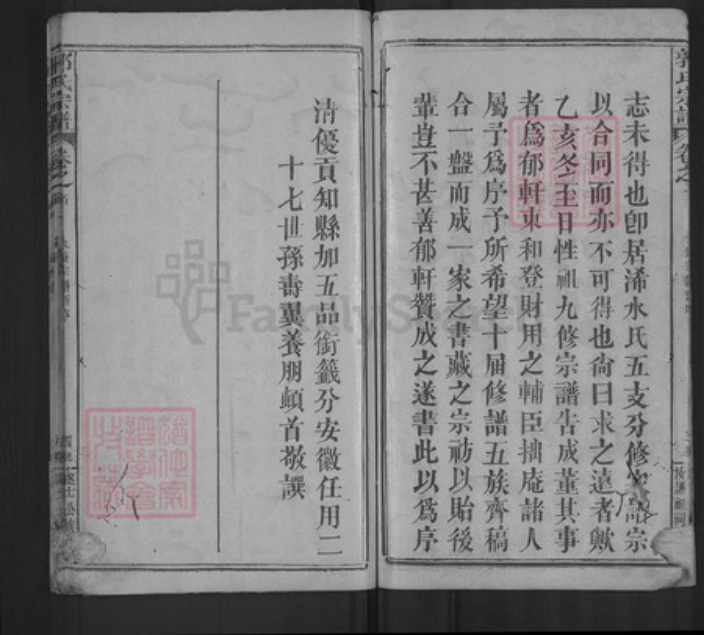 郭氏宗譜 卷之
志未得也卽居浠水氏五支分修宗譜宗
以合同而亦不可得也尙曰求之遠者歟
乙亥冬至日性祖九修宗譜告成董其事
者爲郁軒東和登財用之輔臣拙庵諸人
屬予爲序予所希望十届修譜五族齊稿
合一盤而成一家之書藏之宗祊以貽後
輩豈不甚善郁軒贊成之遂書此以爲序
清優貢知縣加五品銜籤分安徽任用二
十七世孫壽翼養朋頓首敬譔
郭氏宗譜 卷之
FamilySearch